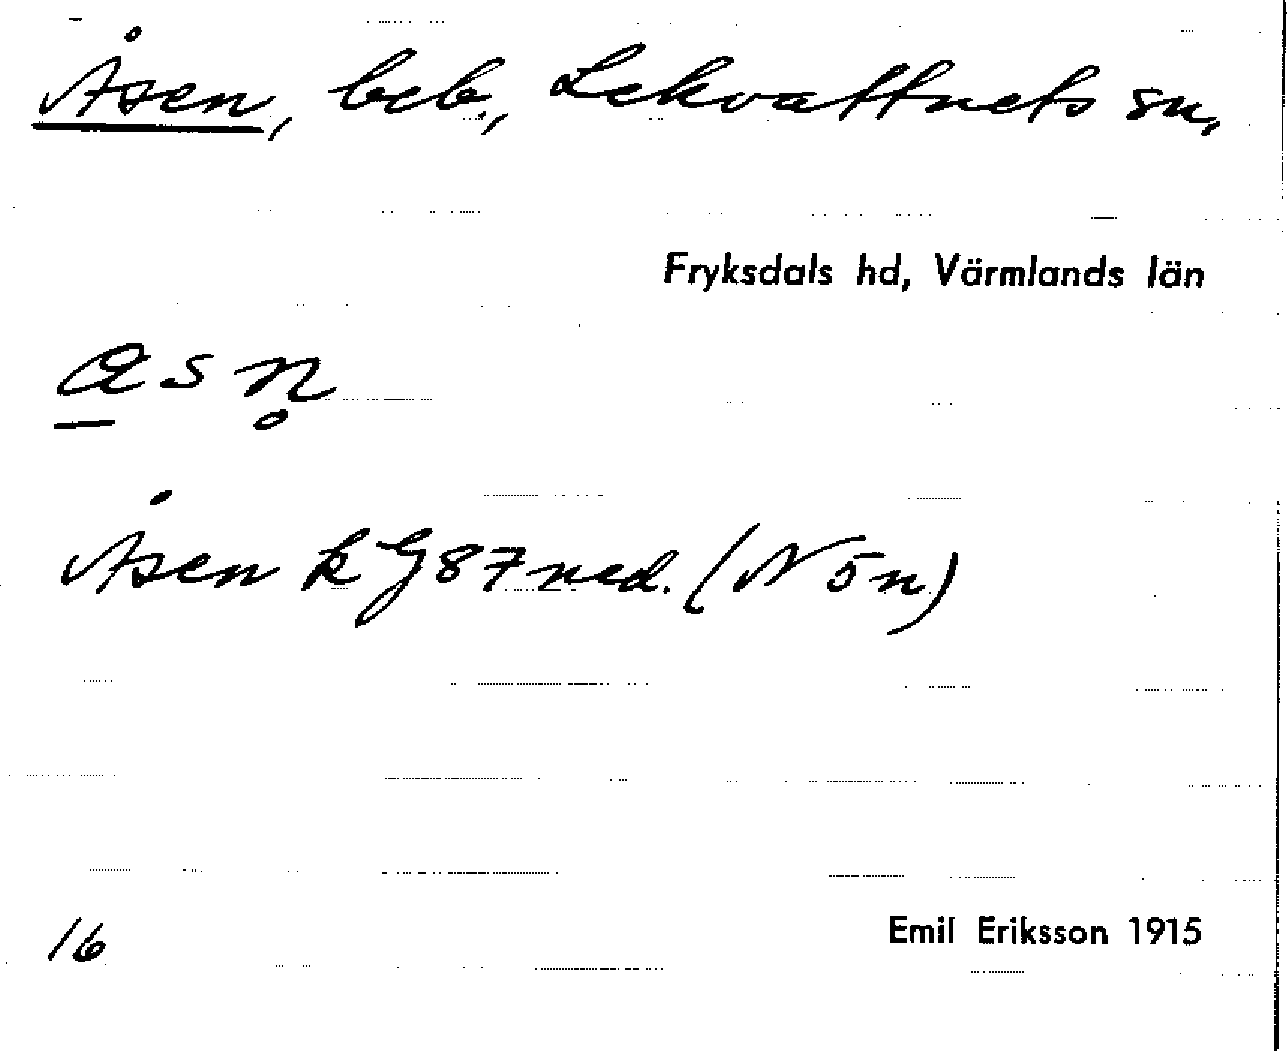 Åsen, beb., Lekvattnets sn,
Fryksdals hd, Värmlands län
a̱sn̥
Åsen kG87ned. (N ön)
16
Emil Eriksson 1915